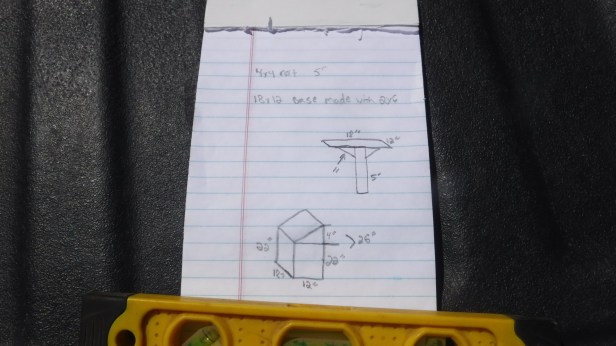 4x4 not 5"
12x12 Base made with 2x6
12" 12"
"
5"
4" >26"
22" 22"
12" 12"